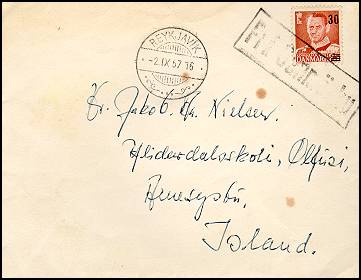 REYKJAVÍK
-2.IX.57.16
30
DANMARK
Hr. Jakob Kr. Nielsen.
Hlidardalsskoli, Ölfusi,
Arnessyslu,
Island.